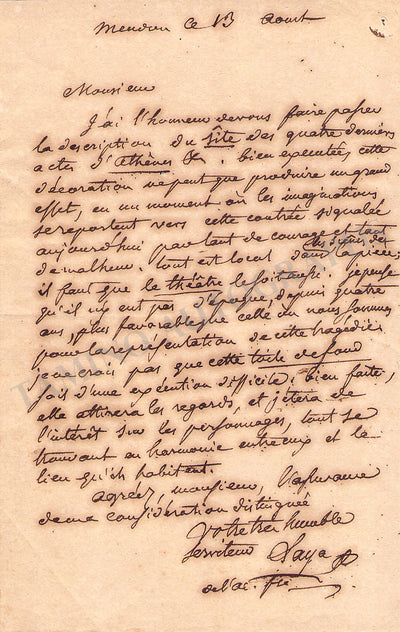 ce 13 Aoust
Monsieur
J'ai l'honneur devous faire passer
la description du site des quatre derniers
actes d'athènes &. bien executée, cette
decoration ne peut que produire un grand
effet, en un moment où les imaginations
sereportent vers cette contrée signalée
aujourdhui par tant de courage et tant
demalheur. tout est local dans la piece;
il faut que le théâtre le soit aussi. jepense
qu'il ny ent pas d'Epoque, depuis quatre
ans, plus favorable que celle ou nous sommes
pour la representation de cette tragedie.
je ne crois pas que cette toile de fond
soit d'une execution difficile; bien faite,
elle attirera les regards, et jetera de
l'interêt sur les personnages, tout se
trouvant en harmonie entreeux et le
lieu qu'ils habitent.
agreez, monsieur, l'assurance
dema consideration distinguée
Votre tres humble
serviteur
de l'ac.